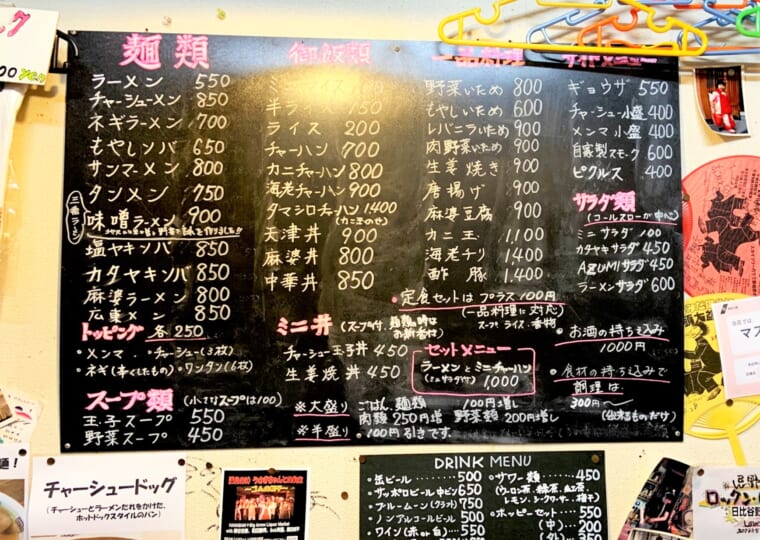 麺類
ラーメン 550
チャーシューメン 850
ネギラーメン 700
もやしソバ 650
サンマーメン 800
タンメン 750
味噌ラーメン 900
塩ヤキソバ 850
カタヤキソバ 850
麻婆ラーメン 800
広東メン 850
トッピング 各250
・メンマ ・チャーシュー(3枚)
・ネギ(辛くしたもの) ・ワンタン(6枚)
スープ類 (小さなスープは100)
玉子スープ 550
野菜スープ 450
御飯類
半ライス 150
ライス 200
チャーハン 700
カニチャーハン 900
海老チャーハン 900
タマシロチャーハン 1400
(カニ玉のせ)
天津丼 900
麻婆丼 800
中華丼 850
ミニ丼
チャーシュー玉子丼 450
生姜焼丼 450
※大盛り ごはん、麺類 100円増し
肉類 250円増 野菜類 200円増し
※半盛り 100円引きです。
一品料理
野菜いため 800
もやしいため 600
レバニラいため 900
肉野菜いため 900
生姜焼き 900
唐揚げ 900
麻婆豆腐 900
カニ玉 1,100
海老チリ 1,400
酢豚 1,400
・定食セットはプラス100円
(一品料理に対応)
スープ、ライス、香物
セットメニュー
ラーメンとミニチャーハン
1,000
サイドメニュー
ギョウザ 550
チャーシュー小盛 400
メンマ小盛 400
自家製スモーク 600
ピクルス 400
サラダ類
(コールスローが中心)
ミニサラダ 100
カタヤキサラダ 450
AZUMIサラダ 450
ラーメンサラダ 600
・お酒の持ち込み
1000円
・食材の持ち込みで
調理は
300円〜
(出来るものだけ)
チャーシュードッグ
(チャーシューとラーメンだれをかけた、
ホットドックスタイルのパン)
DRINK MENU
・缶ビール 500
・サッポロビール中ビン 650
・ブルームーン(クラフト) 750
・ノンアルコールビール 500
・ワイン(赤or白) 550
・サワー類 450
(ウーロン茶、緑茶、紅茶、
レモン、シークワーサー、梅干)
・ホッピーセット 550
(中) 200
(外) 350
日比谷野